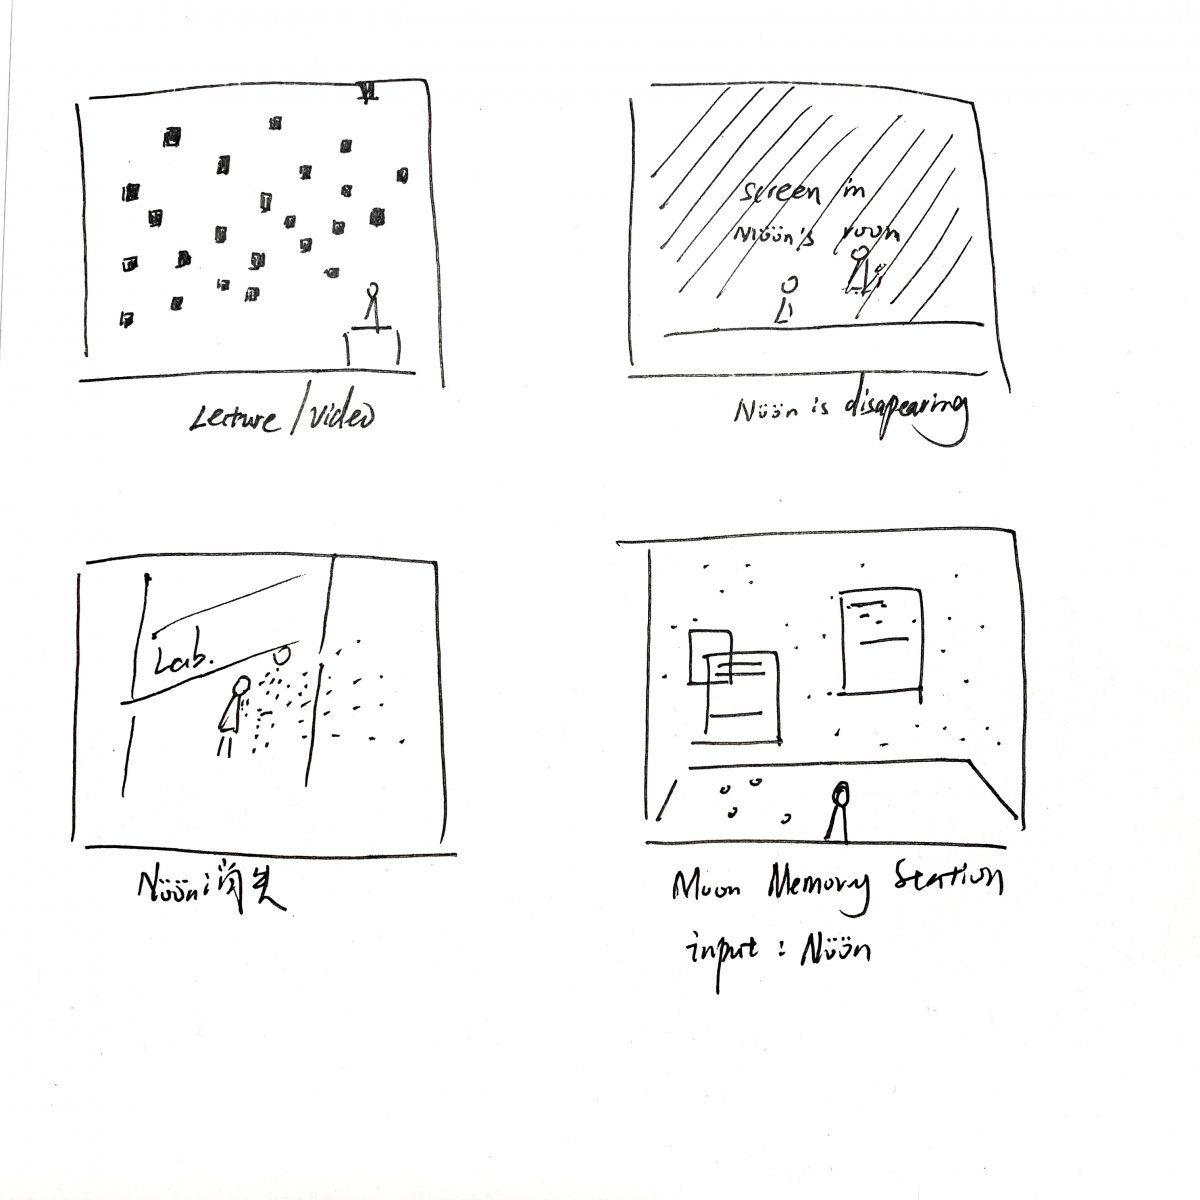 Lecture / video
screen in
Nüön's room
Nüön is disapearing
Lab.
Nüön 消失
Moon Memory Station
input : Nüön